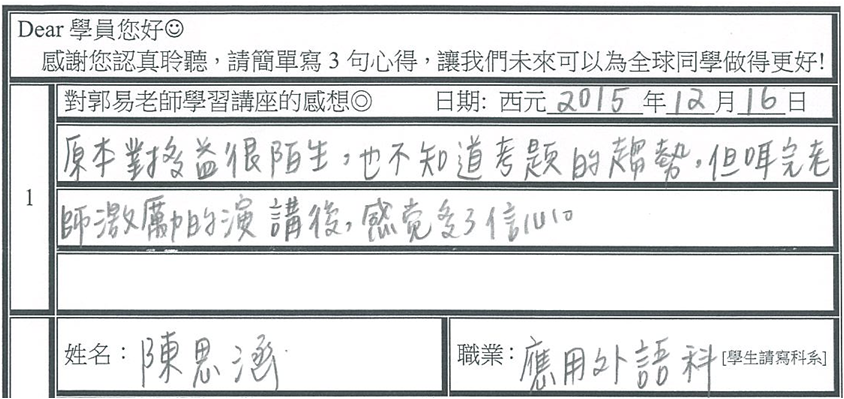 Dear 學員您好☺
感謝您認真聆聽，請簡單寫 3 句心得，讓我們未來可以為全球同學做得更好!
對郭易老師學習講座的感想◎ 日期: 西元 2015 年 12 月 16 日
1
原本對多益很陌生，也不知道考題的趨勢，但听完老
師激勵的演講後，感覚多了信心。
姓名：陳思涵
職業：應用外語科 [學生請寫科系]